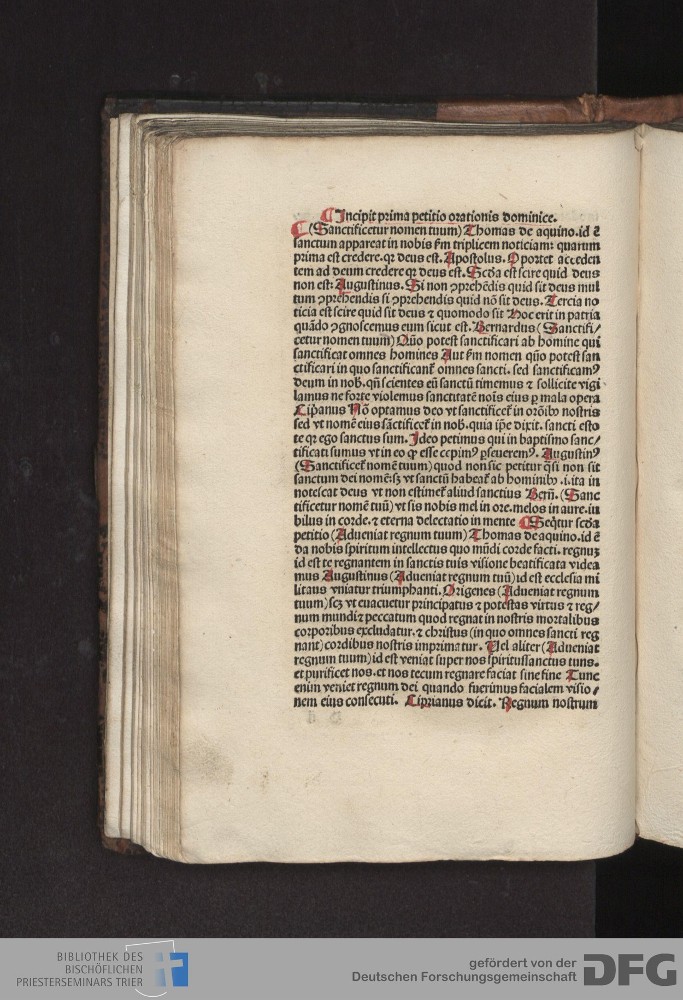 Incipit prima petitio orationis dominice.
(Sanctificetur nomen tuum) Thomas de aquino. id ē
sanctum appareat in nobis ẜm triplicem noticiam: quarum
prima est credere. qꝛ deus est. Apostolus. Oportet acceden
tem ad deum credere qꝛ deus est. Scḋa est scire quid deus
non est: Augustinus. Si non ꝯprehēdis quid sit deus mul
tum ꝯprehendis si ꝯprehendis quid nō sit deus. Tercia no
ticia est scire quid sit deus ⁊ quomodo sit Hoc erit in patria
quādo ꝯgnoscemus eum sicut est. Bernardus (Sanctifi/
cetur nomen tuum) Quō potest sanctificari ab homine qui
sanctificat omnes homines Aut ẜm nomen quō potest san
ctificari in quo sanctificant̉ omnes sancti. sed sanctificamꝰ
deum in nob̉. qn̄ scientes eū sanctū timemus ⁊ sollicite vigi
lamus ne forte violemus sanctitatē noīs eius ꝑ mala opera
Cip̄anus Nō optamus deo vt sanctificet̉ in orōībꝫ nostris
sed vt nomē eius sāctificet̉ in nob̉. quia ip̄e dixit. sancti esto
te qꝛ ego sanctus sum. Ideo petimus qui in baptismo sanc/
tificati sumus vt in eo ꝙ esse cepimꝰ ꝑseueremꝰ. Augustinꝰ
(Sanctificet̉ nomē tuum) quod non sic petitur q̄si non sit
sanctum dei nomē: sꝫ vt sanctū habeat̉ ab hominibꝫ .i. ita in
notescat deus vt non estimet̉ aliud sanctius Berñ. (Sanc
tificetur nomē tuū) vt sis nobis mel in ore. melos in aure. iu
bilus in corde. ⁊ eterna delectatio in mente Seq̄tur scḋa
petitio (Adueniat regnum tuum) Thomas de aquino. id ē
da nobis spiritum intellectus quo mūdi corde facti. regnuꝫ
id est te regnantem in sanctis tuis visione beatificata videa
mus Augustinus (Adueniat regnum tuū) id est ecclesia mi
litans vniatur triumphanti. Origenes (Adueniat regnum
tuum) scꝫ vt euacuetur principatus ⁊ potestas virtus ⁊ reg/
num mundi ⁊ peccatum quod regnat in nostris mortalibus
corporibus excludatur. ⁊ christus (in quo omnes sancti reg
nant) cordibus nostris imprimatur. Uel aliter (Adueniat
regnum tuum) id est veniat super nos spiritussanctus tuus.
et purificet nos. et nos tecum regnare faciat sine fine Tunc
enim veniet regnum dei quando fuerimus facialem visio/
nem eius consecuti. Ciprianus dicit. Regnum nostrum
BIBLIOTHEK DES
BISCHÖFLICHEN
PRIESTERSEMINARS TRIER
gefördert von der
Deutschen Forschungsgemeinschaft
DFG